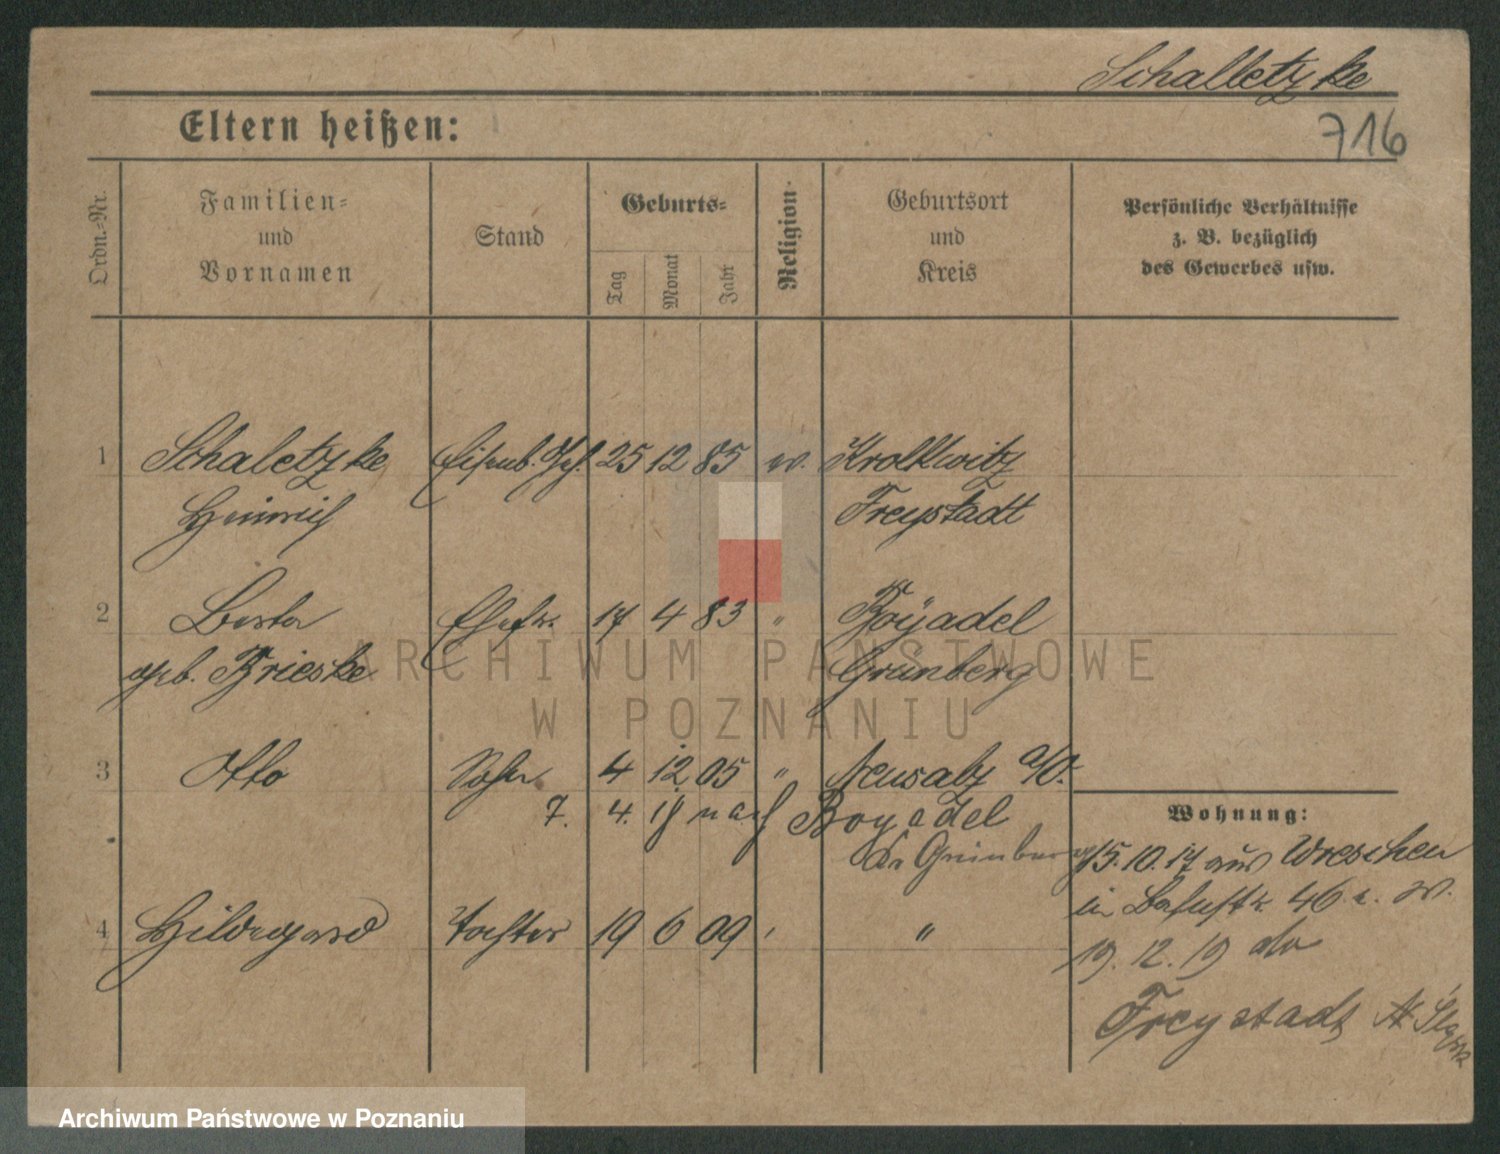 Schalletzke
716
Eltern heißen:
Ordn.-Nr.
Familien-
und
Vornamen
Stand
Geburts-
Tag
Monat
Jahr
Religion
Geburtsort
und
Kreis
Persönliche Verhältnisse
z. B. bezüglich
des Gewerbes usw.
1 Schaletzke Eisenb. 25 12 85 ev. Krolkwitz
Heinrich Freystadt
2 Berta Ehefr. 17 4 83 " Boyadel
geb. Brieske Grünberg
3 Otto Sohn 4 12 05 " Neusalz a/O.
7. 4. 18 nach Boyadel
Kr Grünberg
4 Hildegard Tochter 19 6 09 " "
Wohnung:
15.10.17 aus Wreschen
in 46
19.12.19
Freystadt
ARCHIWUM PAŃSTWOWE
W POZNANIU
Archiwum Państwowe w Poznaniu